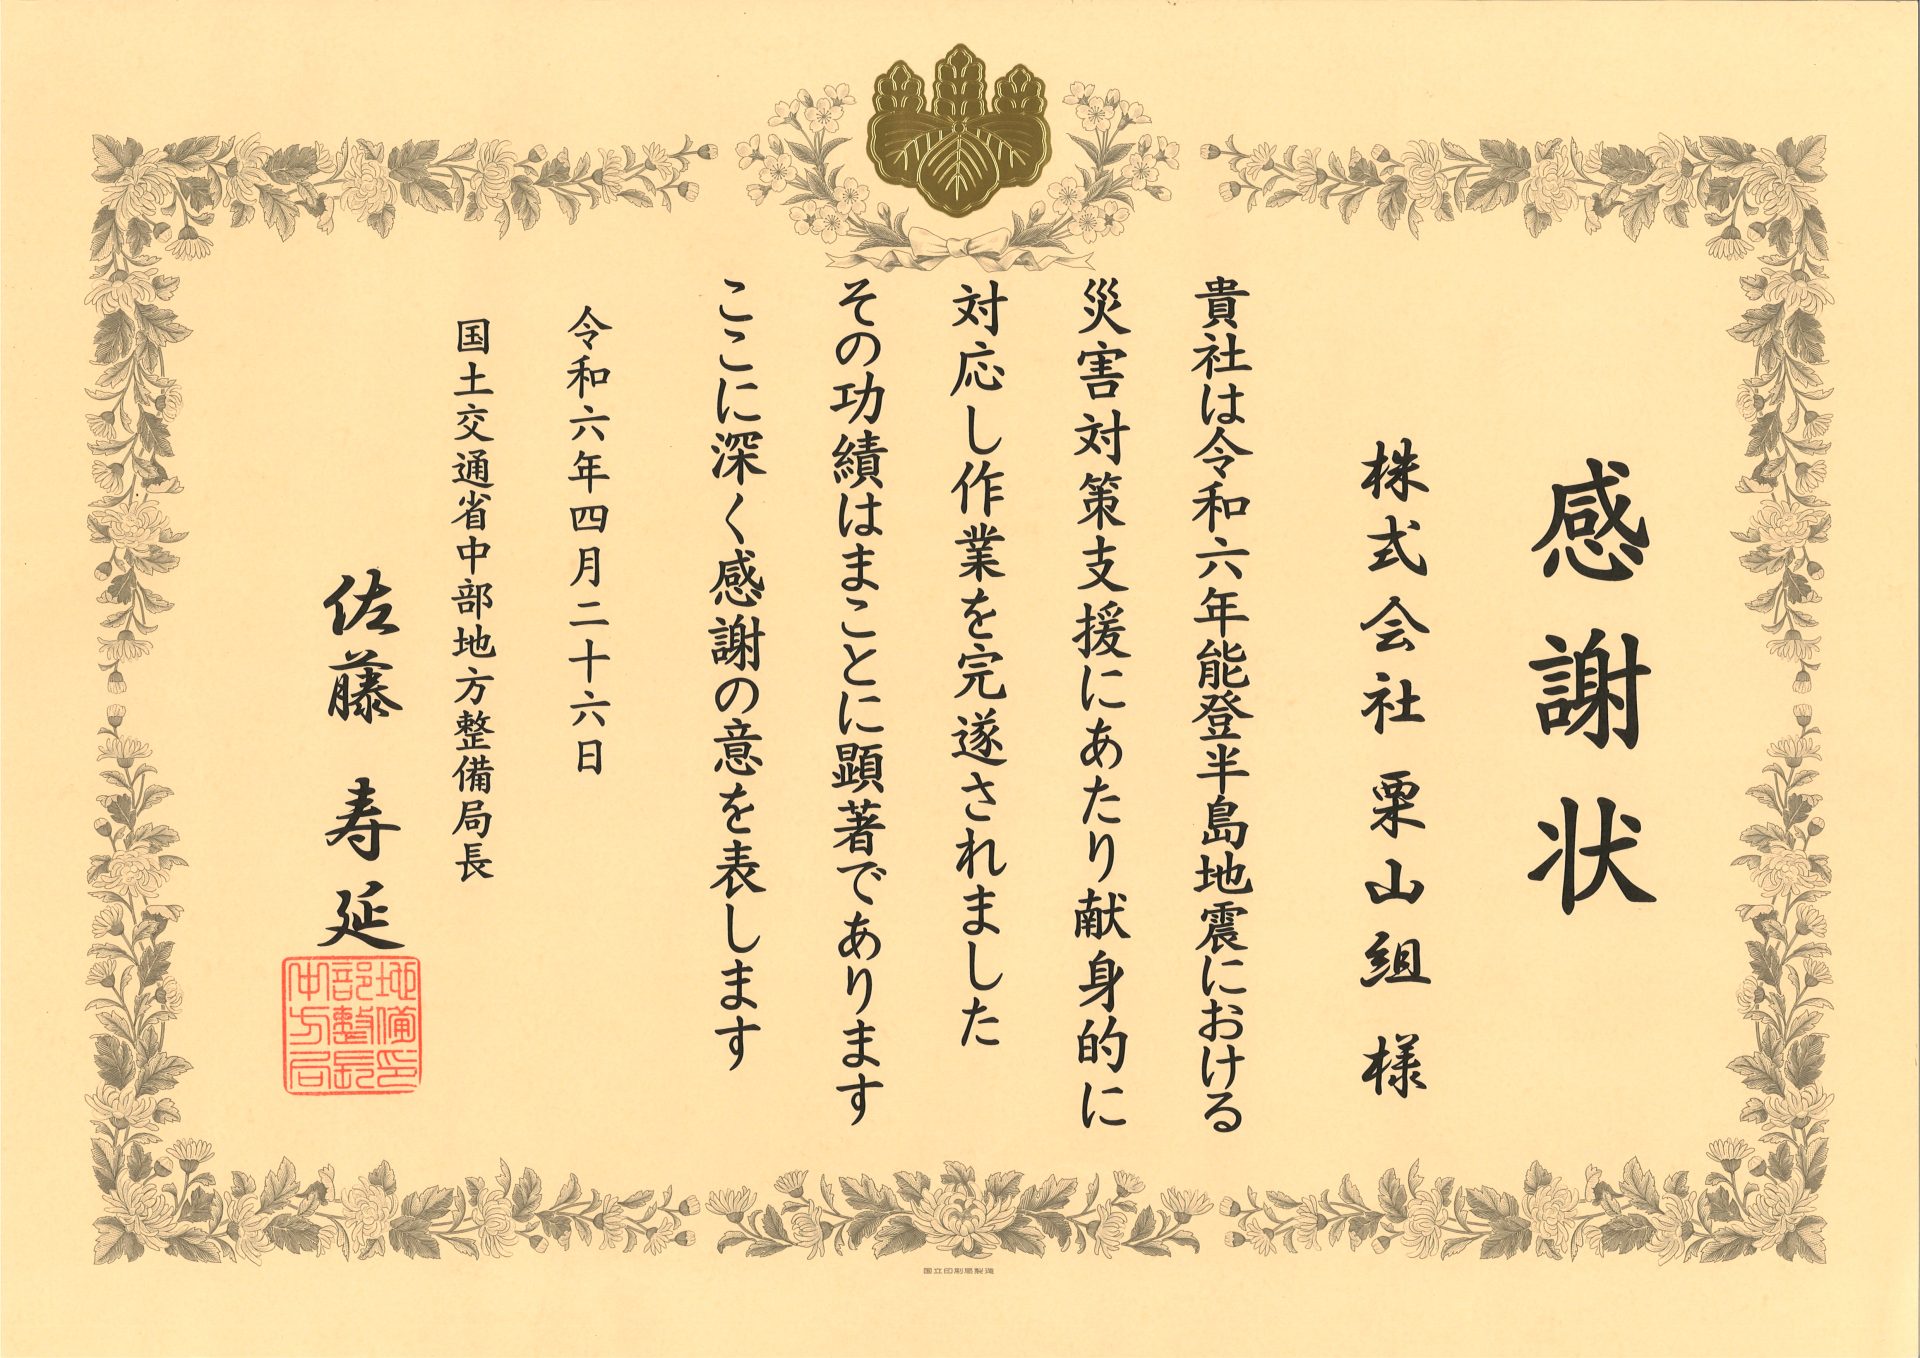 感謝状
株式会社 栗山組 様
貴社は令和六年能登半島地震における
災害対策支援にあたり献身的に
対応し作業を完遂されました
その功績はまことに顕著であります
ここに深く感謝の意を表します
令和六年四月二十六日
国土交通省中部地方整備局長
佐藤 寿延
地備印
部整長
中方局
国立印刷局製造